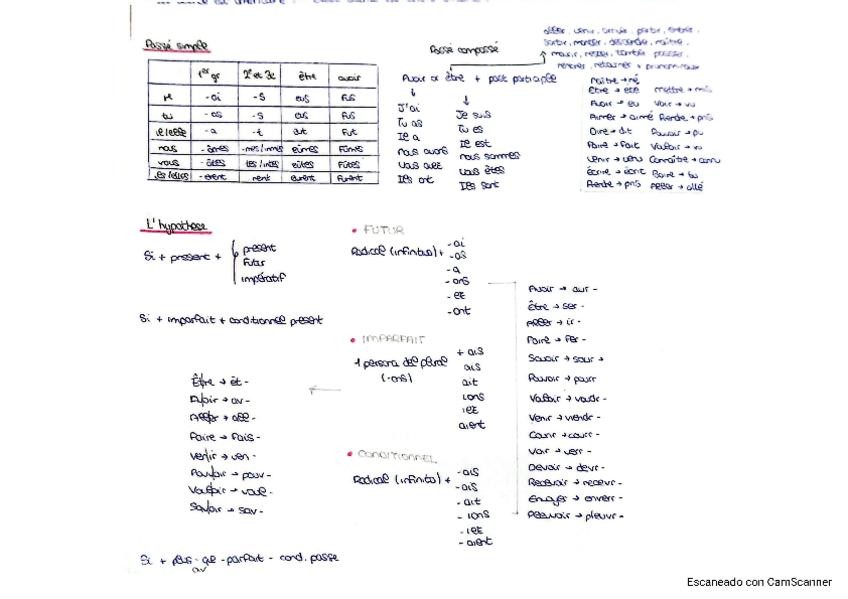 Passé simple
1er gr 2e et 3e être avoir
je -ai -s eus fus
tu -as -s eus fus
il/elle -a -t eut fut
nous -âmes -mes/imes eûmes fûmes
vous -âtes eûtes fûtes
-erent rent eurent furent
Passé composé
aller, venir, arriver, partir, entrer,
sortir, monter, descendre, naître,
mourir, rester, tomber, passer,
rentrer, retourner + pronominaux
Avoir or être + past participle
J'ai Je suis
Tu as Tu es
Il a Il est
nous avons nous sommes
vous avez vous êtes
Ils ont Ils sont
Naître → né
Être → été mettre → mis
Avoir → eu Voir → vu
Aimer → aimé
Dire → dit Pouvoir → pu
Faire → fait
Venir → venu Connaître → connu
écrire → écrit Boire → bu
Aller → allé
L'hypothese
Si + present +
present
Futur
impératif
Si + imparfait + conditionnel présent
• FUTUR
Radical (infinitivo) +
-ai
-as
-a
-ons
-ez
-ont
• IMPARFAIT
1 persona del plural
(-ons)
+ ais
ais
ait
ions
iez
aient
Être → ét-
Avoir → av-
Aller → all-
Faire → fais-
Venir → ven-
Pouvoir → pouv-
Vouloir → voul-
Savoir → sav-
• CONDITIONNEL
Radical (infinitivo) +
-ais
-ais
-ait
-ions
-iez
-aient
Avoir → aur-
être → ser-
Aller → ir-
Faire → fer-
Savoir → saur
Pouvoir → pourr
Vouloir → voudr-
Venir → viendr-
Courir → courr-
Voir → verr-
Devoir → devr-
Recevoir → recevr-
Envoyer → enverr-
Pleuvoir → pleuvr-
Si + plus-que-parfait - cond. passe
Escaneado con CamScanner